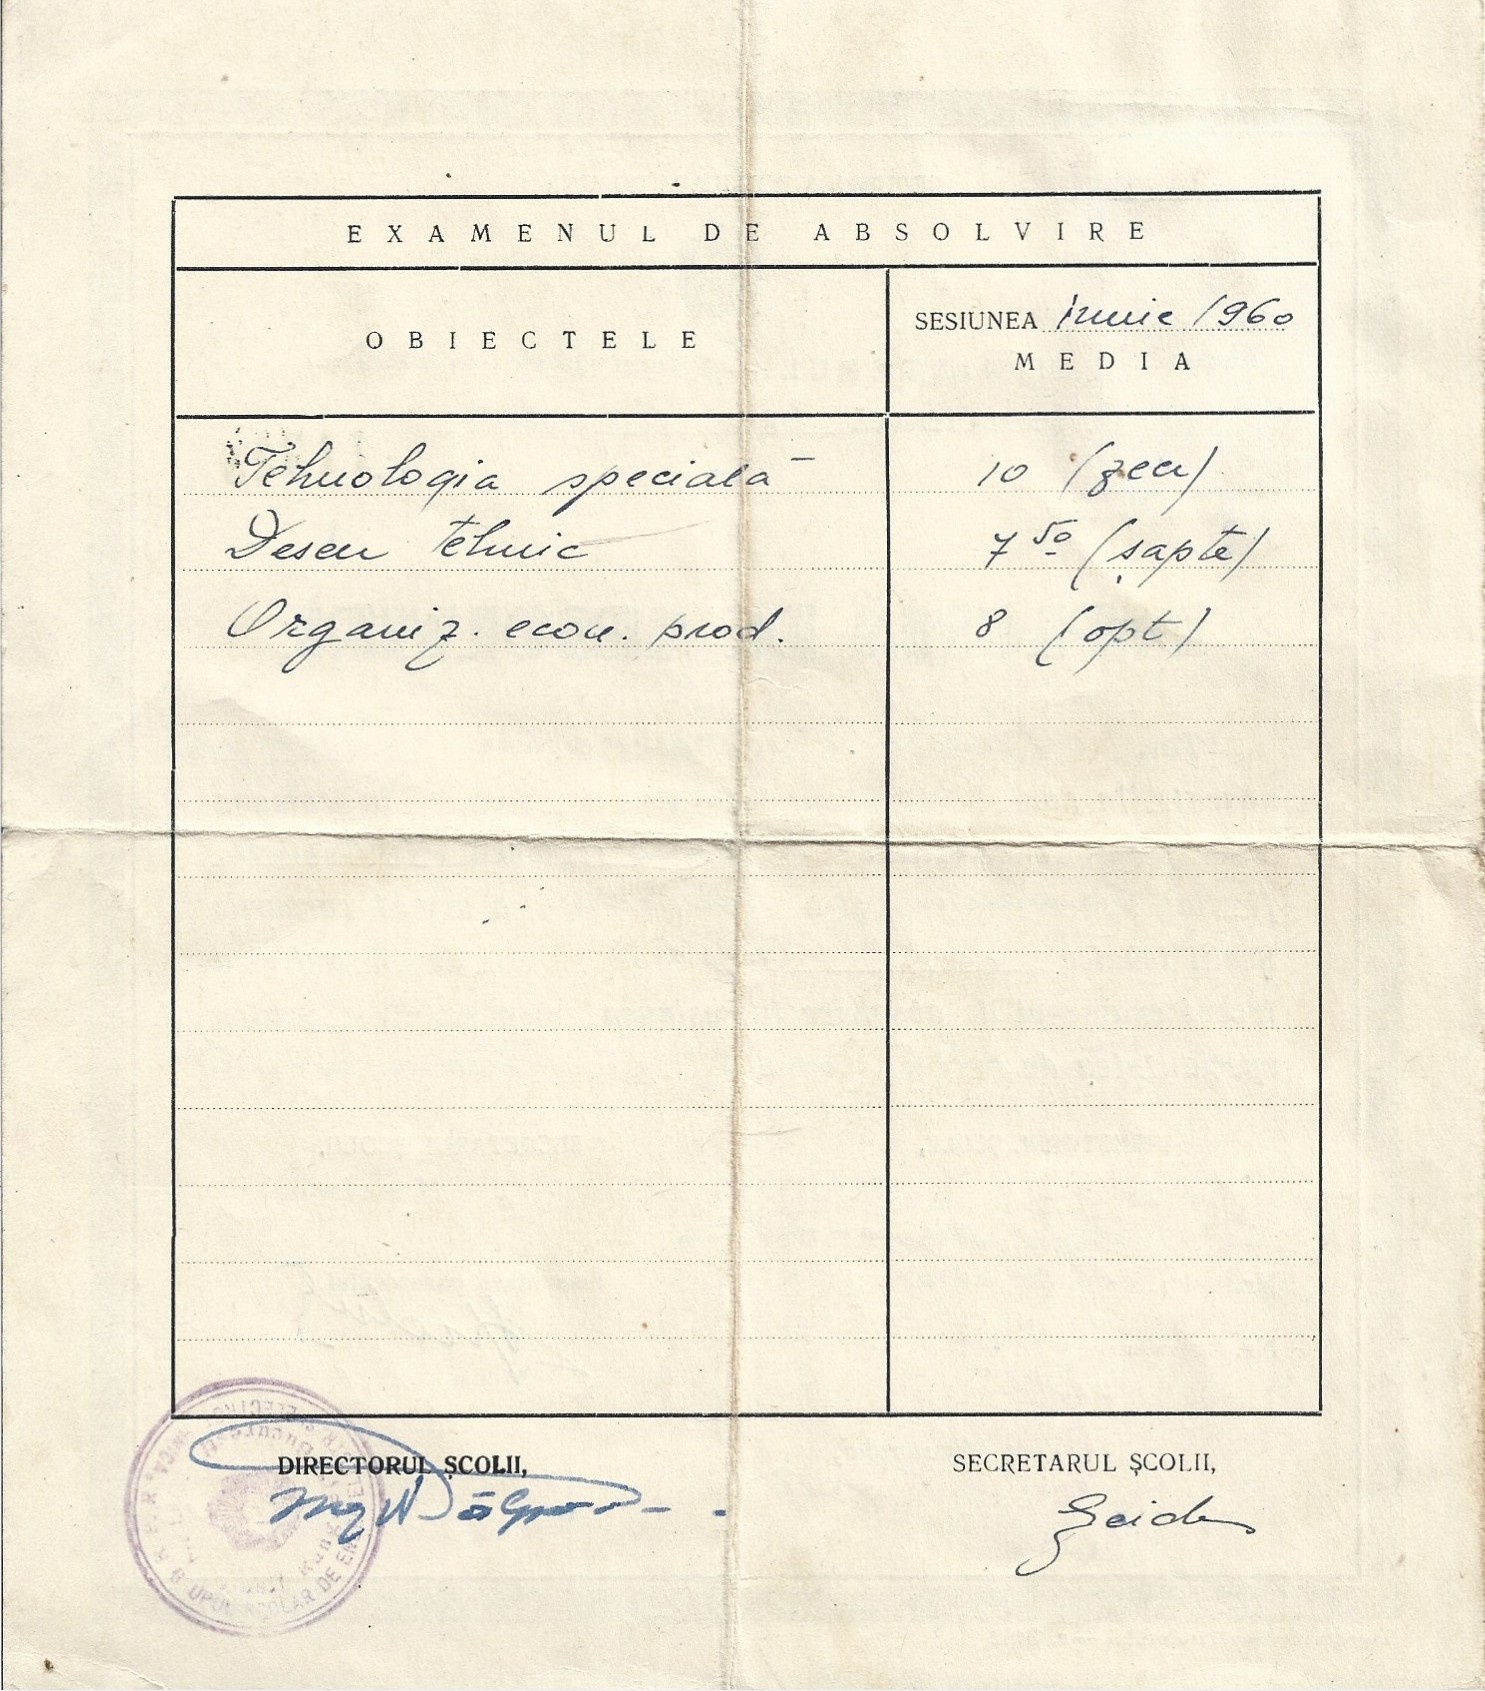 EXAMENUL DE ABSOLVIRE
OBIECTELE
SESIUNEA iunie 1960
MEDIA
Tehnologia specială 10 (zece)
Desen tehnic 7 50 (șapte)
Organiz. econ. prod. 8 (opt)
DIRECTORUL ȘCOLII,
SECRETARUL ȘCOLII,
R.P.R.
GRUPUL ȘCOLAR DE